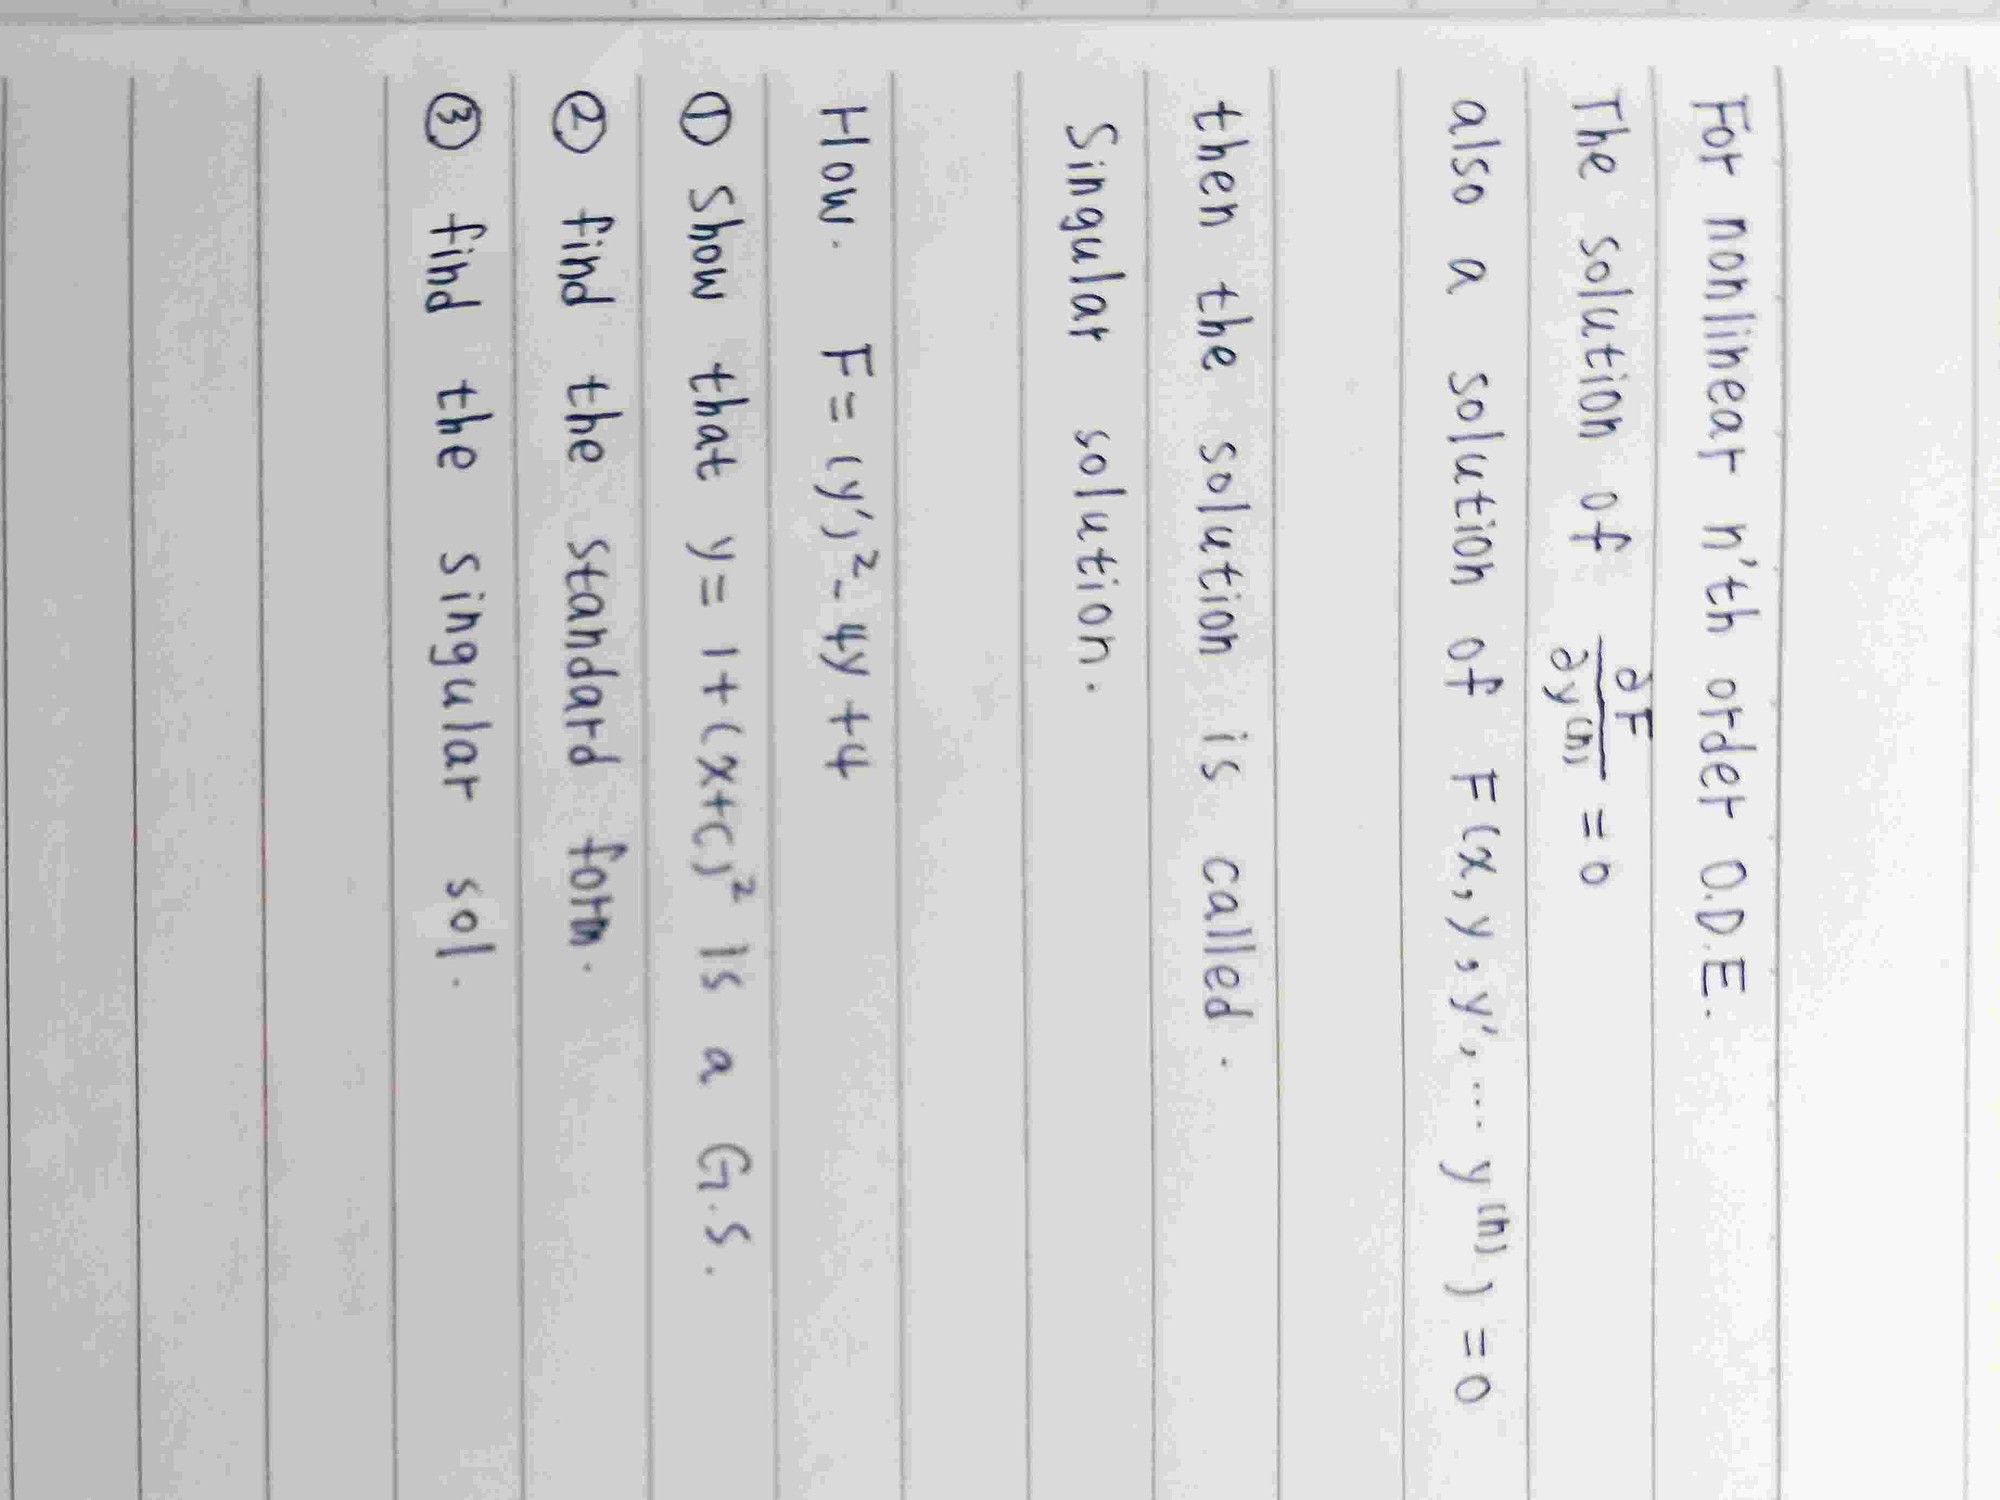 For nonlinear n'th order O.D.E.
The solution of ∂F/∂y⁽ⁿ⁾ = 0
also a solution of F(x, y, y', ... y⁽ⁿ⁾) = 0
then the solution is called.
Singular solution.
How. F = (y')² - 4y + 4
① Show that y = 1 + (x+c)² is a G.S.
② find the standard form.
③ find the singular sol.